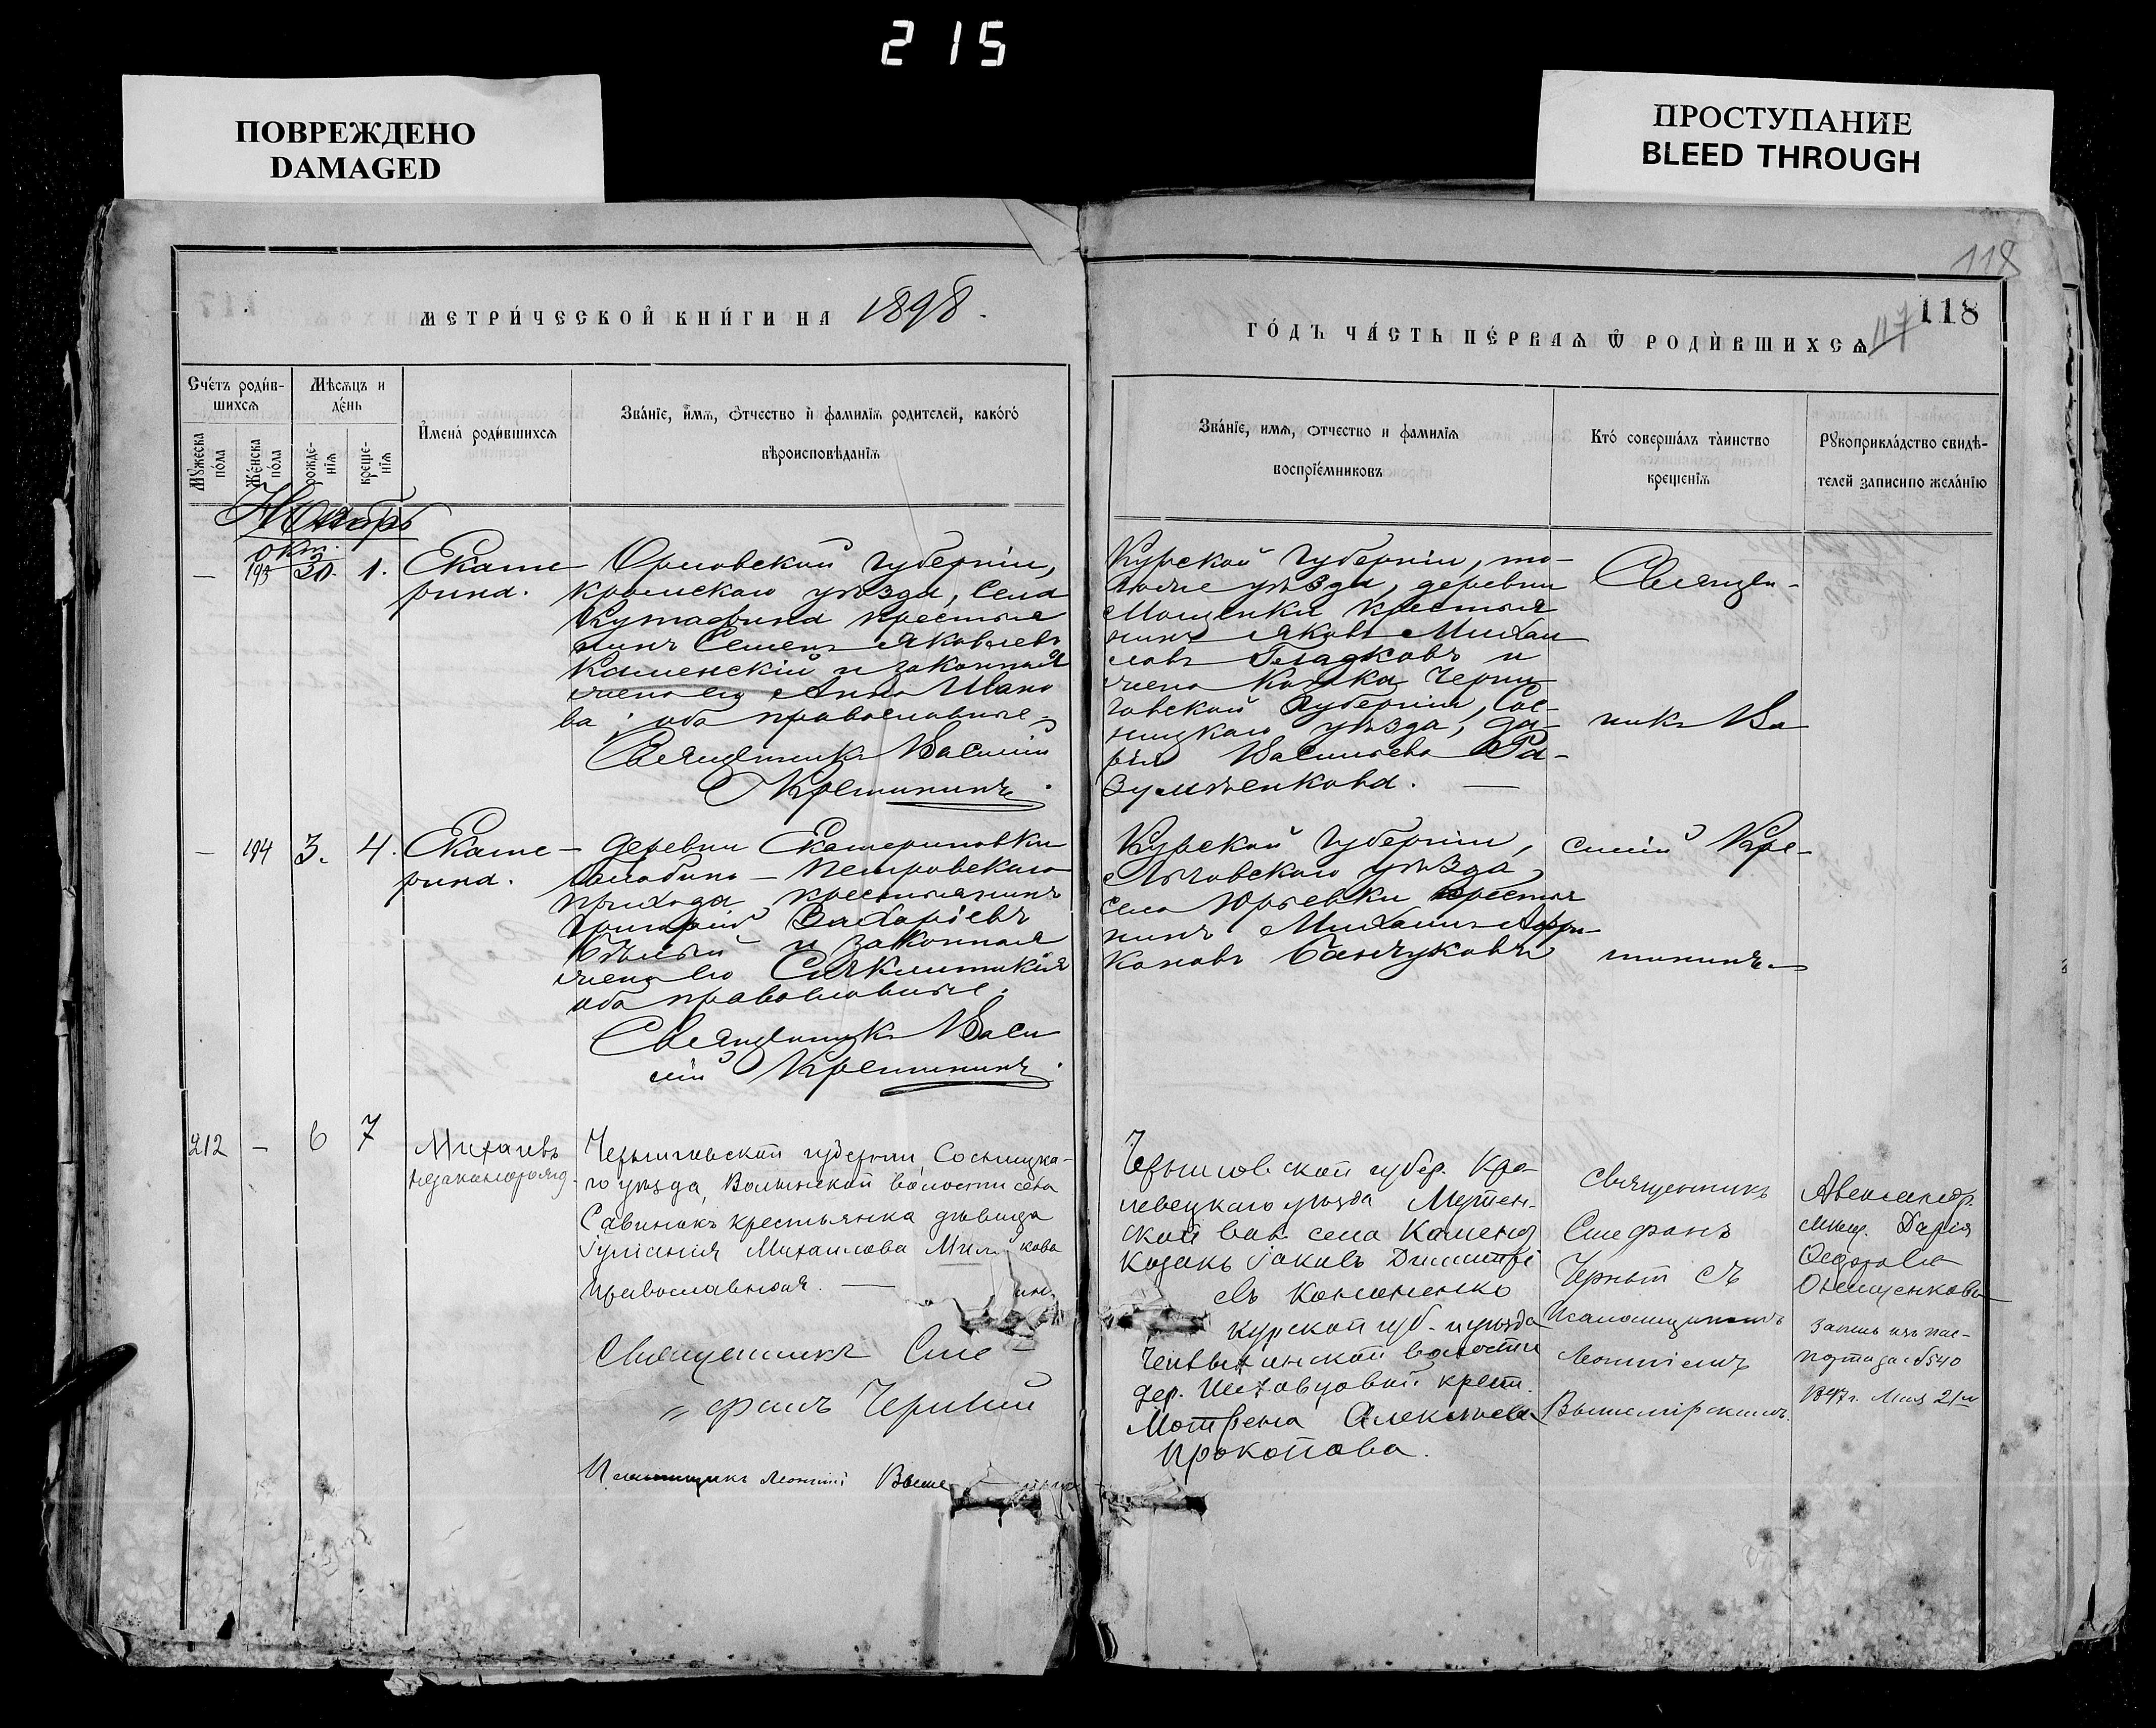 215
ПОВРЕЖДЕНО
DAMAGED
ПРОСТУПАНИЕ
BLEED THROUGH
118
118
117
МЕТРИ́ЧЕСКОЙ КНИ́ГИ НА 1898.
ГО́ДЪ ЧА́СТЬ ПЕ́РВАѦ Ѿ РОДИ́ВШИХСѦ
Сче́тъ роди́в-
шихсѧ
Мѣсѧцъ и
де́нь
Мꙋжеска
по́ла
Же́нска
по́ла
рожде-
нїѧ
креще-
нїѧ
И҆мена́ роди́вшихсѧ
Зва́нїе, и҆мѧ, ѻ҆́тчество и҆ фамилїѧ родителей, како́гѡ
вѣроисповѣданїѧ
Зва́нїе, имѧ, ѻтчество и фамилїѧ
воспрїе́мниковъ
Кто́ соверша́лъ та́инство
крещенїѧ
Рꙋкоприкла́дство свидѣ-
телей записи по жела́нїю
Ноябрь
—
Окт.
193
30.
1.
Екате
рина.
Орловской губерніи,
Кромскаго уѣзда, села
Кутафина крестья
нинъ Семенъ Яковлевъ
Каменскій и законная
жена его Анна Ивано
ва; оба православные.
Священникъ Василій
Крешининъ.
Курской губерніи, то-
гоже уѣзда, деревни
Мощенки крестья
нинъ Яковъ Михаи
ловъ Гладковъ и
жена козака Черни
говской губерніи, Сос-
ницкаго уѣзда, Да-
рья Васильева Ра-
зумѣенкова. —
Священ-
никъ Ва
—
194
3.
4.
Екате-
рина.
деревни Екатериновки
Петровскаго
прихода крестьянинъ
Григорій Захаріевъ
Бѣлый и законная
жена его Сиклитикія
оба православные.
Священникъ Васи
лій Крешининъ.
Курской губерніи,
Льговскаго уѣзда,
села Юрьевки крестья
нинъ Михаилъ Афри-
кановъ Банчуковъ
силій Кре-
шининъ.
212
—
6
7
Михаилъ
незаконорожд.
Черниговской губерніи Сосницка-
го уѣзда, Волынской волости села
Савинокъ крестьянка дѣвица
Іуліанія Михаилова
православная. —
Священникъ Сте
фанъ Черный
Псаломщикъ Леонтій Выше
Черниговской губер. Кро-
левецкаго уѣзда Мутен-
ской вол. села Каменя
козакъ Іаковъ Димитрі
евъ Кононенко
Курской губ. и уѣзда
волости
дер. крест.
Мотрена Алексѣева
Прокопова.
священникъ
Стефанъ
Черный съ
псаломщикомъ
Леонтіемъ
Вышемірскимъ.
Александр.
мѣщ. Дарія
Ѳедорова
Онищенкова
запись изъ пас-
порта за №540
1897 г. Мая 21го